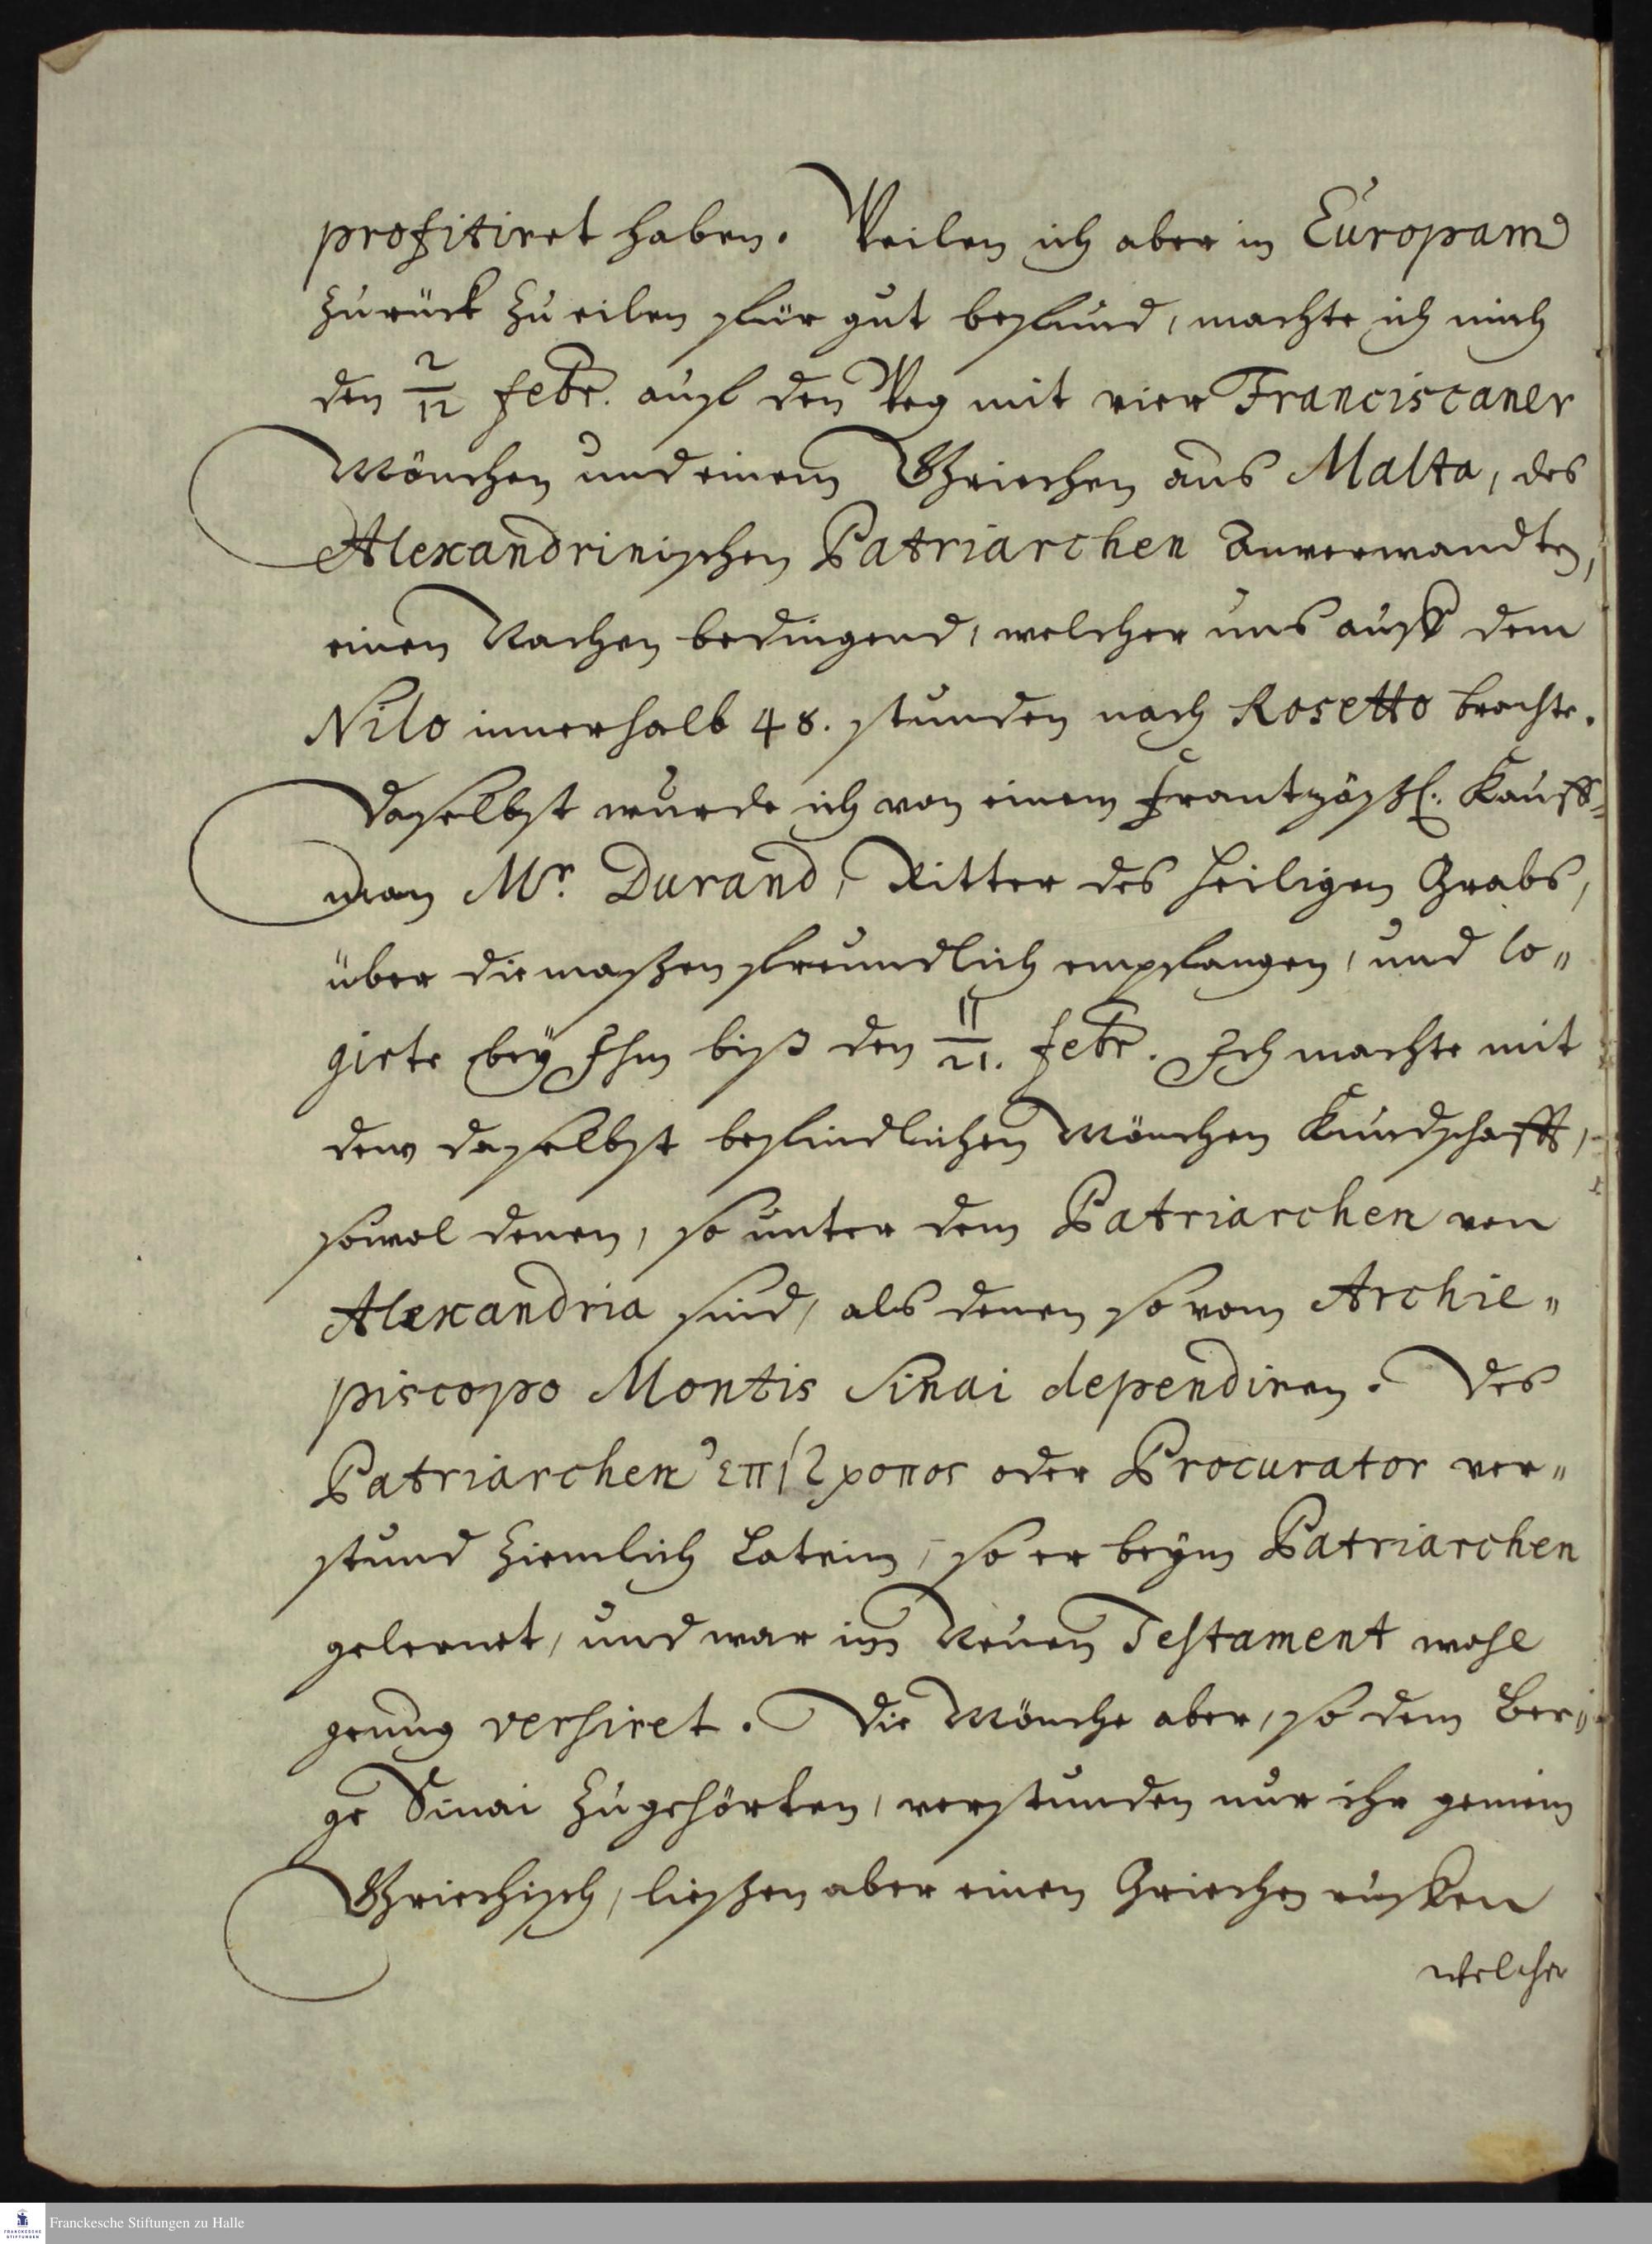 profitiret haben. Weilen ich aber in Europam
zurück zu eilen für gut befund, machte ich mich
den 2/12 Febr. auf den Weg mit vier Franciscaner
Mönchen und einem Griechen aus Malta, des
Alexandrinischen Patriarchen Anverwandten,
einen Nachen bedingend, welcher uns auff dem
Nilo innerhalb 48. stunden nach Rosetto brachte.
Daselbst wurde ich von einem Frantzösch. Kauff-
man Mr. Durand, Ritter des Heiligen Grabs,
über die maßen freundlich empfangen, und lo„
girte bey Ihm biß den 11/21. Febr. Ich machte mit
den daselbst befindlichen Mönchen Kundschafft,
sowol denen, so unter dem Patriarchen von
Alexandria sind, als denen so vom Archie„
piscopo Montis Sinai dependiren. Des
Patriarchen ἐπίτροπος oder Procurator ver„
stund ziemlich Latein, so er beym Patriarchen
gelernet, und war im Neuen Testament wohl
genug versiret. Die Mönche aber, so dem Ber„
ge Sinai zugehörten, verstunden nur ihr gemein
Griechisch, ließen aber einen Griechen ruffen
welcher
Franckesche Stiftungen zu Halle
FRANCKESCHE
STIFTUNGEN